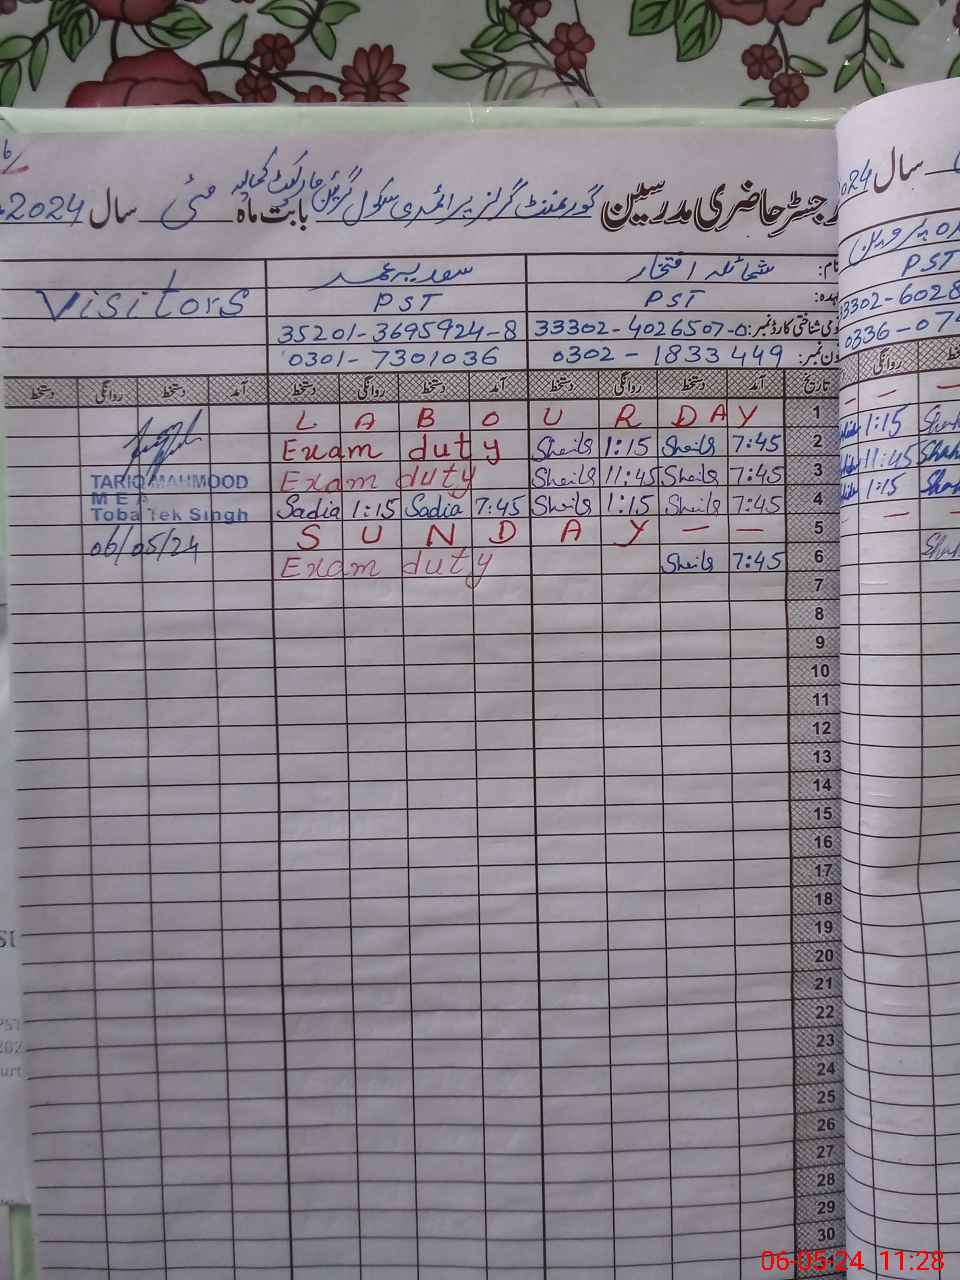 رجسٹر حاضری مدرسین گورنمنٹ گرلز پرائمری سکول گرین مارکیٹ کمالیہ بابت ماہ مئی سال 2024
سال 2024
نام: شمائلہ افتخار سعدیہ Visitors
عہدہ: PST PST PST
قومی شناختی کارڈ نمبر: 33302-4026507-0 35201-3695924-8 33302-6028
فون نمبر: 0302-1833449 0301-7301036 0336-07
تاریخ آمد دستخط روانگی دستخط آمد دستخط روانگی دستخط آمد دستخط روانگی دستخط روانگی
L A B O U R D A Y 1
Exam duty Sheila 1:15 Sheila 7:45 2 1:15
TARIQ MAHMOOD Exam duty Sheila 11:45 Sheila 7:45 3 11:45
M E A
Toba Tek Singh Sadia 1:15 Sadia 7:45 Sheila 1:15 Sheila 7:45 4 1:15
06/05/24 S U N D A Y - - 5
Exam duty Sheila 7:45 6
7
8
9
10
11
12
13
14
15
16
17
18
19
20
21
22
23
24
25
26
27
28
29
30
06-05-24 11:28